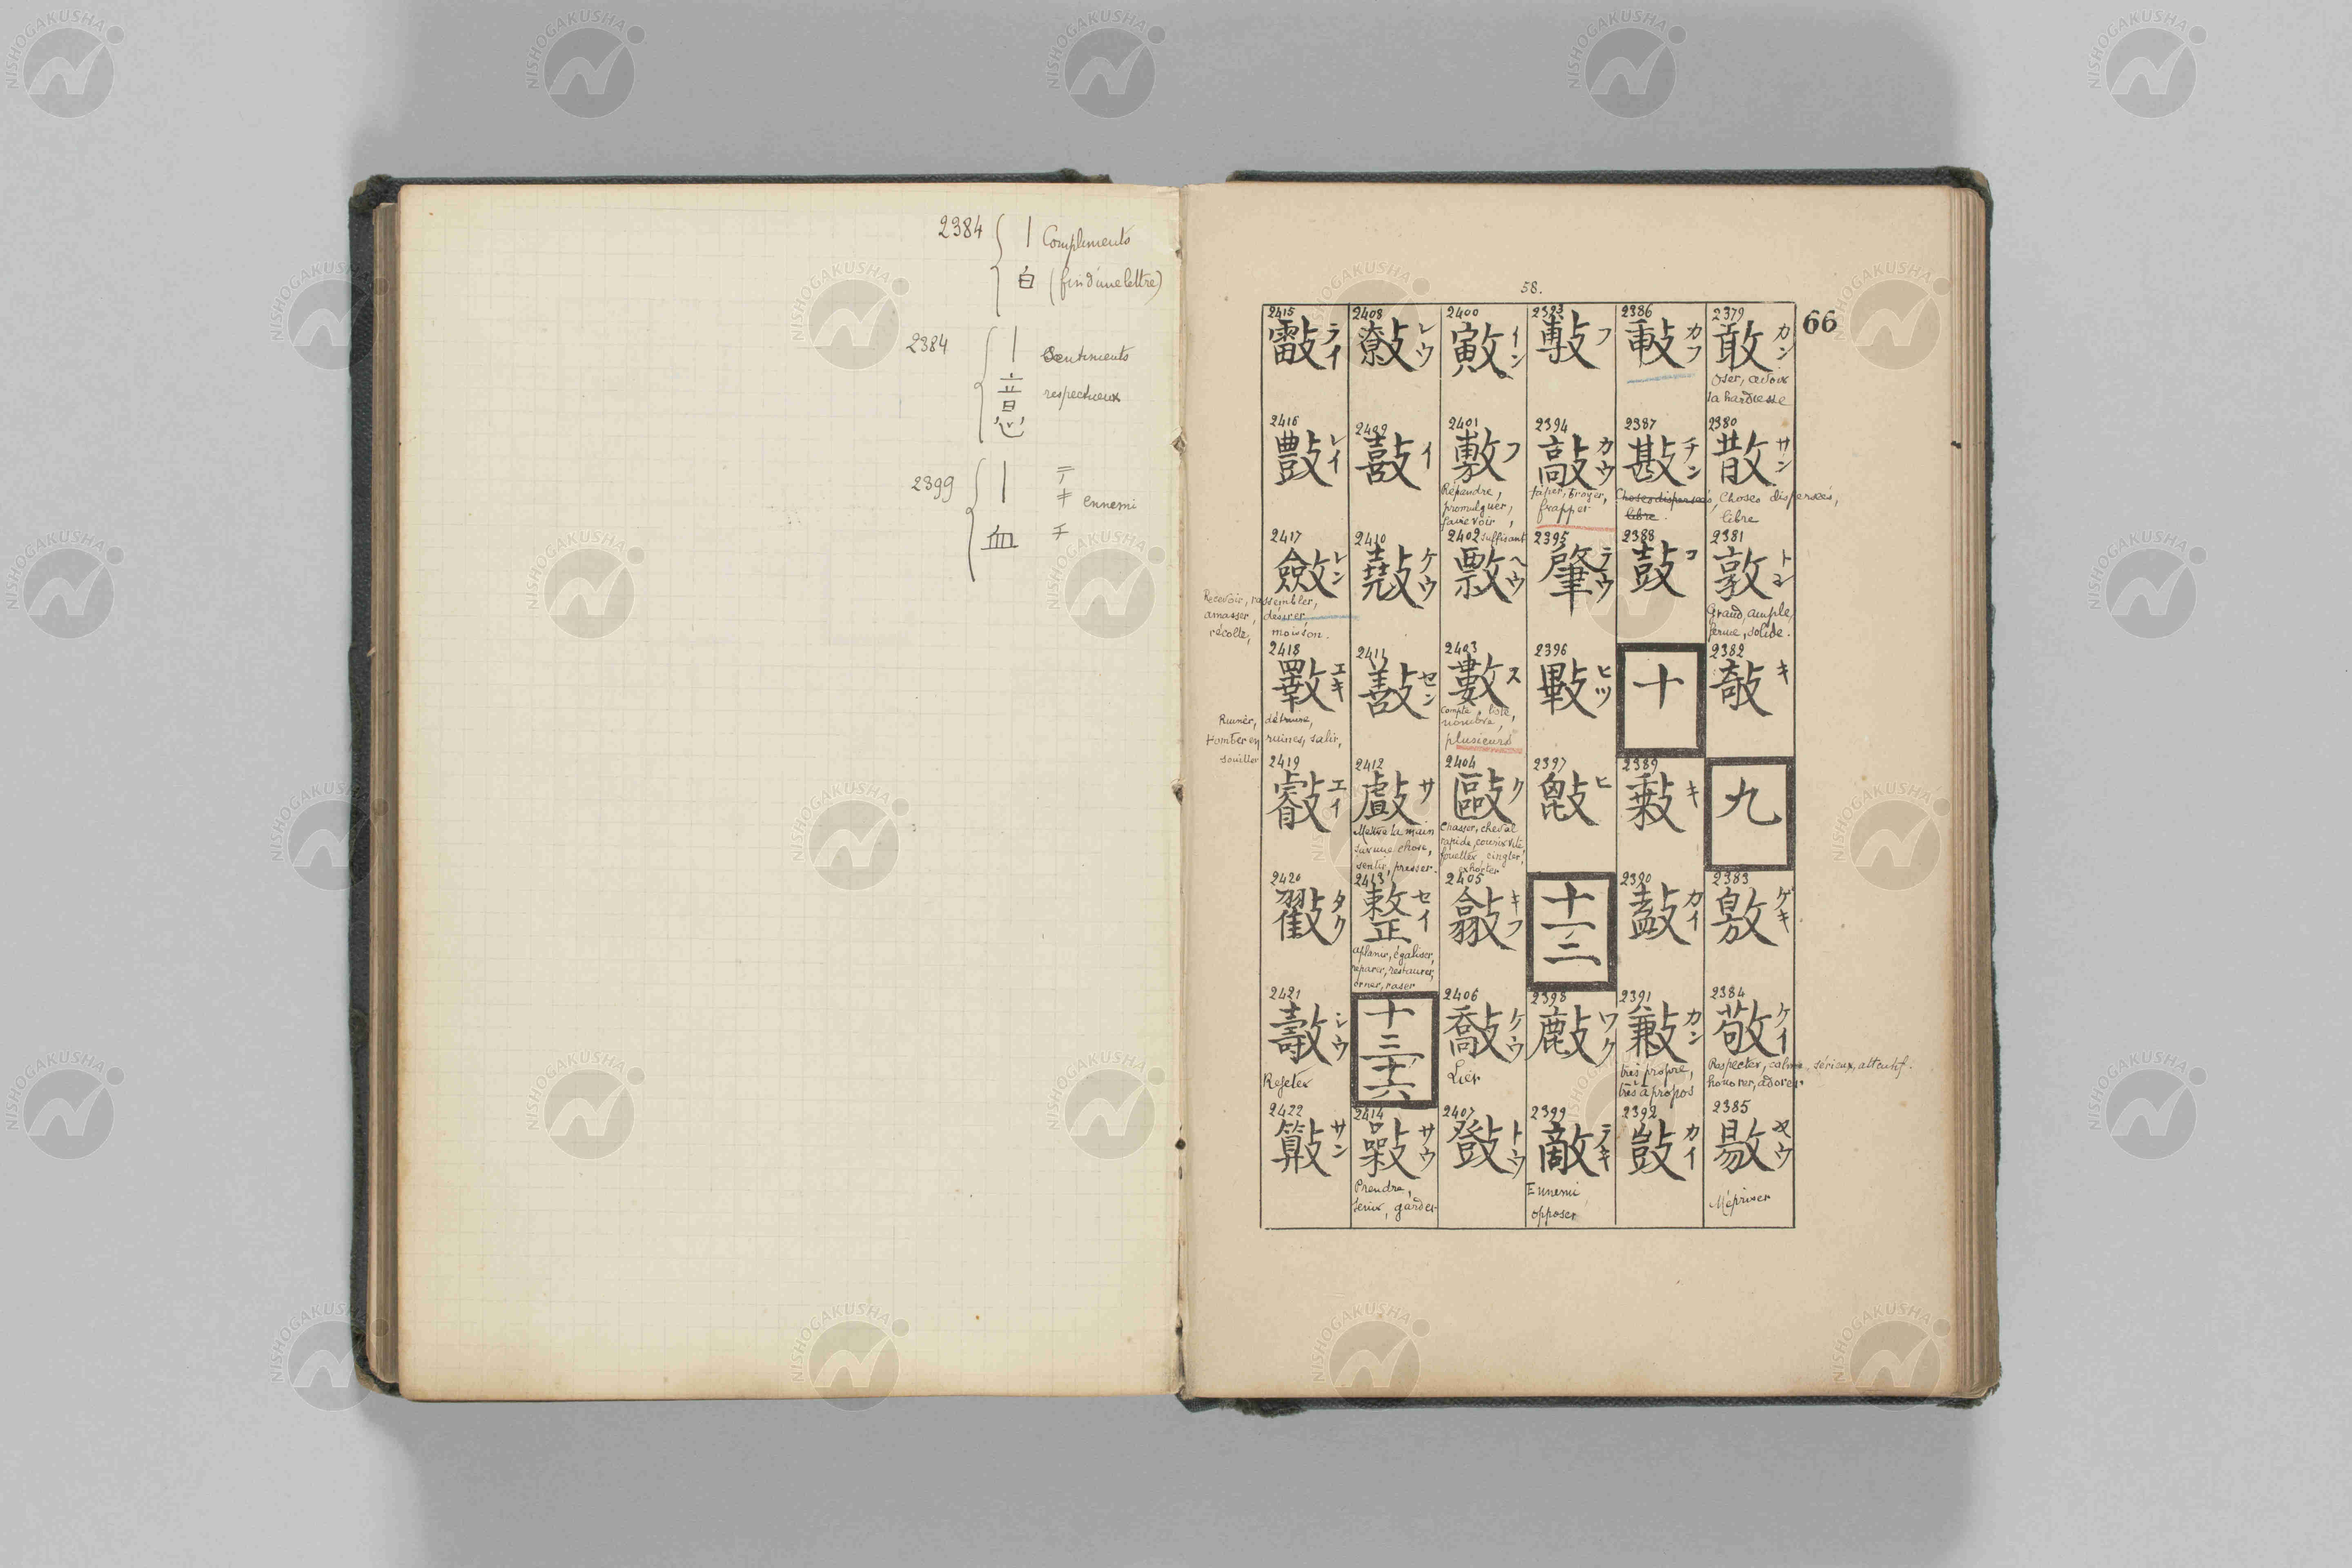 2384 { 丨 Compliments
白 (fin d'une lettre)
2384 { 丨 Sentiments
意 respectueux
2399 { 丨 テキ ennemi
血 チ
58.
66
2379
敢 カン
Oser, avoir
la hardiesse
2380
散 サン
Choses dispersées,
libre
2381
敦 トン
Grand, ample,
ferme, solide.
2382
敧 キ
九
2383
敫 ゲキ
2384
敬 ケイ
Respecter, calme, sérieux, attentif.
honorer, adorer
2385
敭 ヤウ
Mépriser
2386
カフ
2387
チン
Choses dispersées,
libre.
2388
鼓 コ
十
2389
キ
2390
カイ
2391
カン
très propre,
très à propos
2392
敳 カイ
2393
フ
2394
敲 カウ
taper, broyer,
frapper
2395
肇 テウ
2396
ヒツ
2397
ヒ
十一
二
2398
ワク
2399
敵 テキ
Ennemi
opposer
2400
イン
2401
敷 フ
Répandre,
promulguer,
faire voir,
suffisant
2402
ヘウ
2403
數 ス
compte, liste,
nombre,
plusieurs
2404
敺 ク
Chasser, cheval
rapide, courir vite
fouetter, cingler,
exhorter
2405
キフ
2406
敽 ケウ
Lier
2407
トウ
2408
敹 レウ
2409
イ
2410
ケウ
2411
セン
2412
サ
Mettre la main
sur une chose,
sentir, presser.
2413
整 セイ
aplanir, égaliser,
réparer, restaurer,
orner, raser
十三
十六
2414
サウ
Prendre,
tenir, garder
2415
ライ
2416
レイ
2417
斂 レン
Recevoir, rassembler,
amasser, désirer
récolte, moisson.
2418
斁 エキ
Ruiner, détruire,
tomber en ruines, salir,
souiller
2419
エイ
2420
タク
2421
シウ
Rejeter
2422
サン
NISHOGAKUSHA